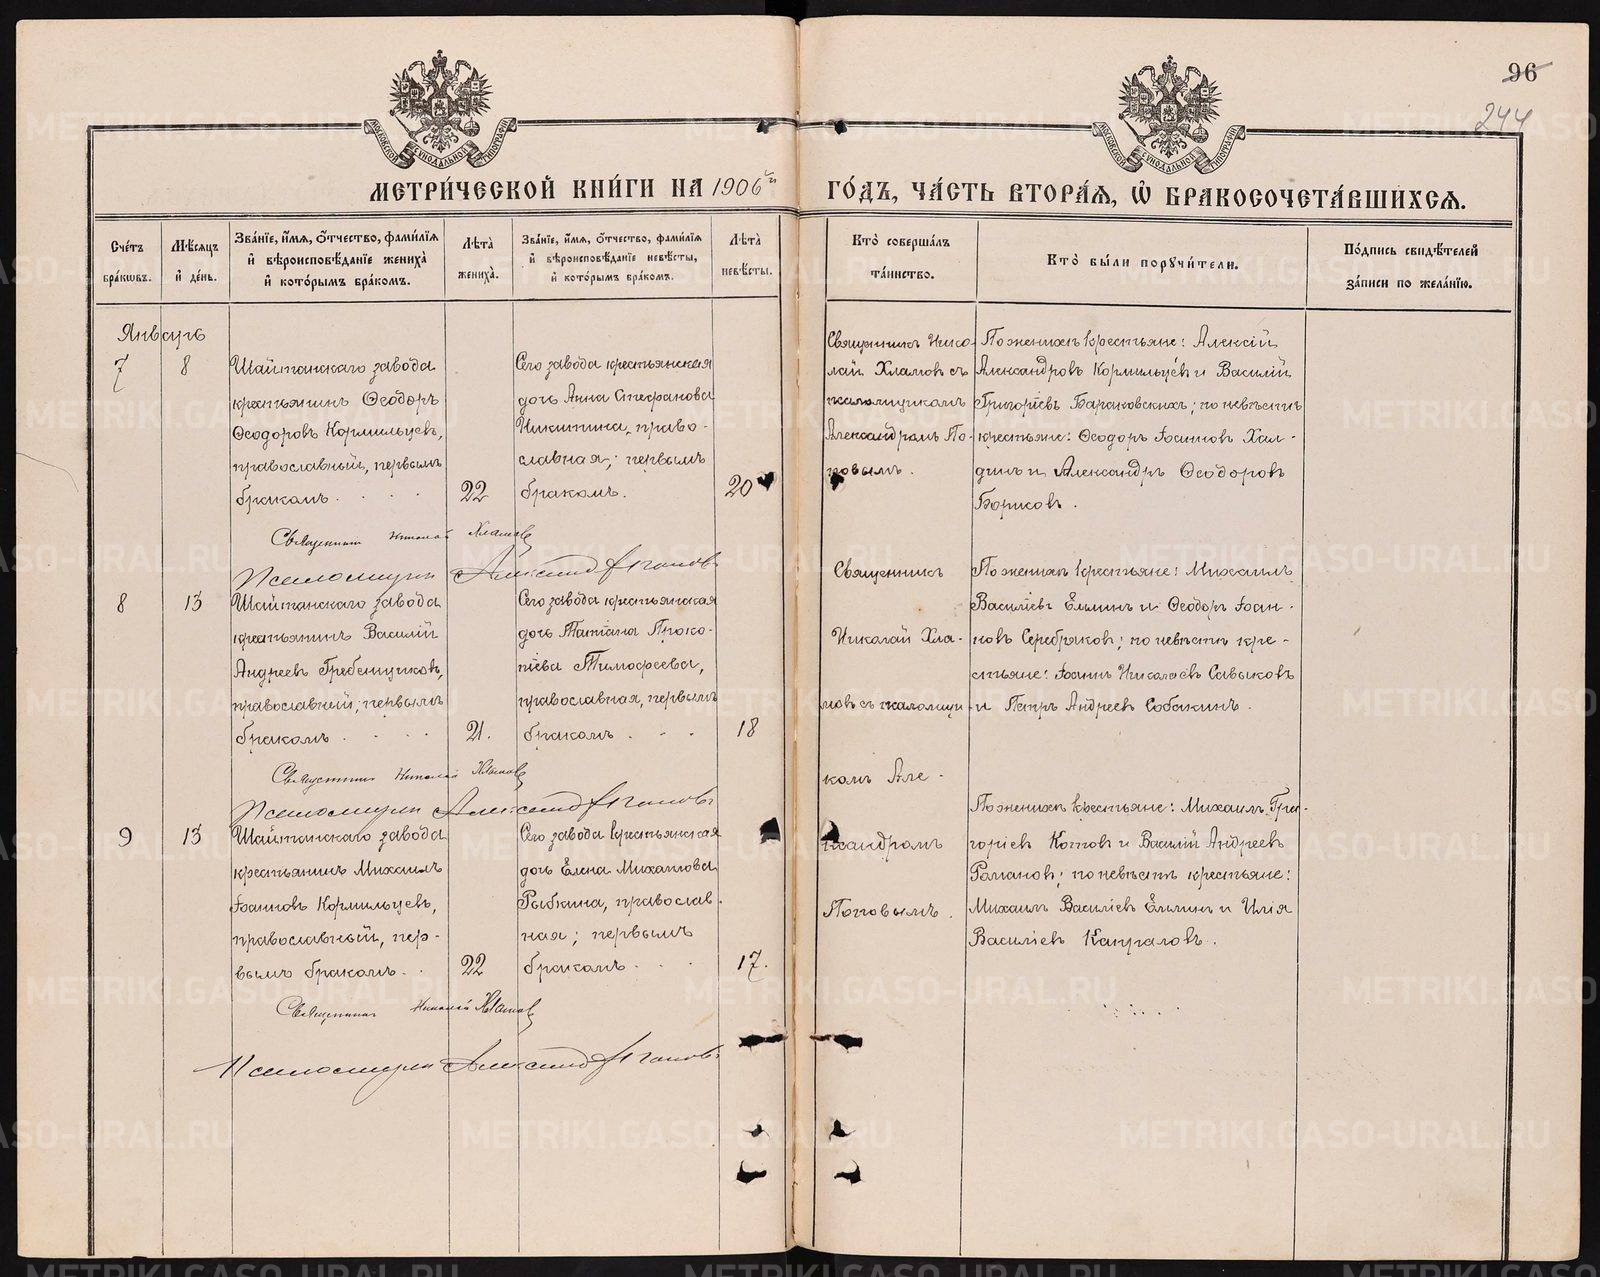 96
244
МЕТРИ́ЧЕСКОЙ КНИ́ГИ НА 1906й ГО́ДЪ, ЧА́СТЬ ВТОРА́Ѧ, Ѽ БРАКОСОЧЕТА́ВШИХСѦ.
Сче́тъ бра́ковъ.
Мѣ́сѧцъ и҆ де́нь.
Зва́нїе, и҆́мѧ, ѻ҆́тчество, фами́лїѧ и҆ вѣроисповѣ́данїе жениха̀ и҆ кото́рымъ бра́комъ.
Лѣ́та жениха̀.
Зва́нїе, и҆́мѧ, ѻ҆́тчество, фами́лїѧ и҆ вѣроисповѣ́данїе невѣ́сты, и҆ кото́рымъ бра́комъ.
Лѣ́та невѣ́сты.
Кто̀ соверша́лъ та́инство.
Кто̀ бы́ли порꙋчи́тели.
По́дпись свидѣ́телей за́писи по жела́нїю.
Январь
7
8
Шайтанскаго завода
крестьянинъ Ѳеодоръ
Ѳеодоровъ Кормильцевъ,
православный, первымъ
бракомъ . . . .
22
Сего завода крестьянская
дочь Анна Стефанова
Никитина, право-
славная; первымъ
бракомъ.
20
Священникъ Нико-
лай Хламовъ съ
псаломщикомъ
Александромъ По-
повымъ.
По женихѣ крестьяне: Алексій
Александровъ Кормильцевъ и Василій
Григоріевъ Бараковскихъ; по невѣстѣ
крестьяне: Ѳеодоръ Іоанновъ Хал-
динъ и Александръ Ѳеодоровъ
Борисовъ.
Священникъ Николай Хламовъ
Псаломщикъ Александръ Поповъ
8
13
Шайтанскаго завода
крестьянинъ Василій
Андреевъ Гребенщиковъ,
православный; первымъ
бракомъ . . . .
21.
Сего завода крестьянская
дочь Татіана Проко-
піева Тимофеева,
православная, первымъ
бракомъ . . .
18
Священникъ
Николай Хла-
мовъ съ псаломщи-
комъ Але-
ксандромъ
Поповымъ.
По женихѣ крестьяне: Михаилъ
Василіевъ Ельминъ и Ѳеодоръ Іоан-
новъ Серебряковъ; по невѣстѣ кре-
стьяне: Іоаннъ Николаевъ Савыковъ
и Петръ Андреевъ Собакинъ.
Священникъ Николай Хламовъ
Псаломщикъ Александръ Поповъ
9
13
Шайтанскаго завода
крестьянинъ Михаилъ
Іоанновъ Кормильцевъ,
православный, пер-
вымъ бракомъ . .
22
Сего завода крестьянская
дочь Елена Михаилова
Рыбкина, православ-
ная; первымъ
бракомъ . . .
17.
По женихѣ крестьяне: Михаилъ Гри-
горіевъ Котовъ и Василій Андреевъ
Романовъ; по невѣстѣ крестьяне:
Михаилъ Василіевъ Ельминъ и Илія
Василіевъ Капраловъ.
Священникъ Николай Хламовъ
Псаломщикъ Александръ Поповъ
METRIKI.GASO-URAL.RU